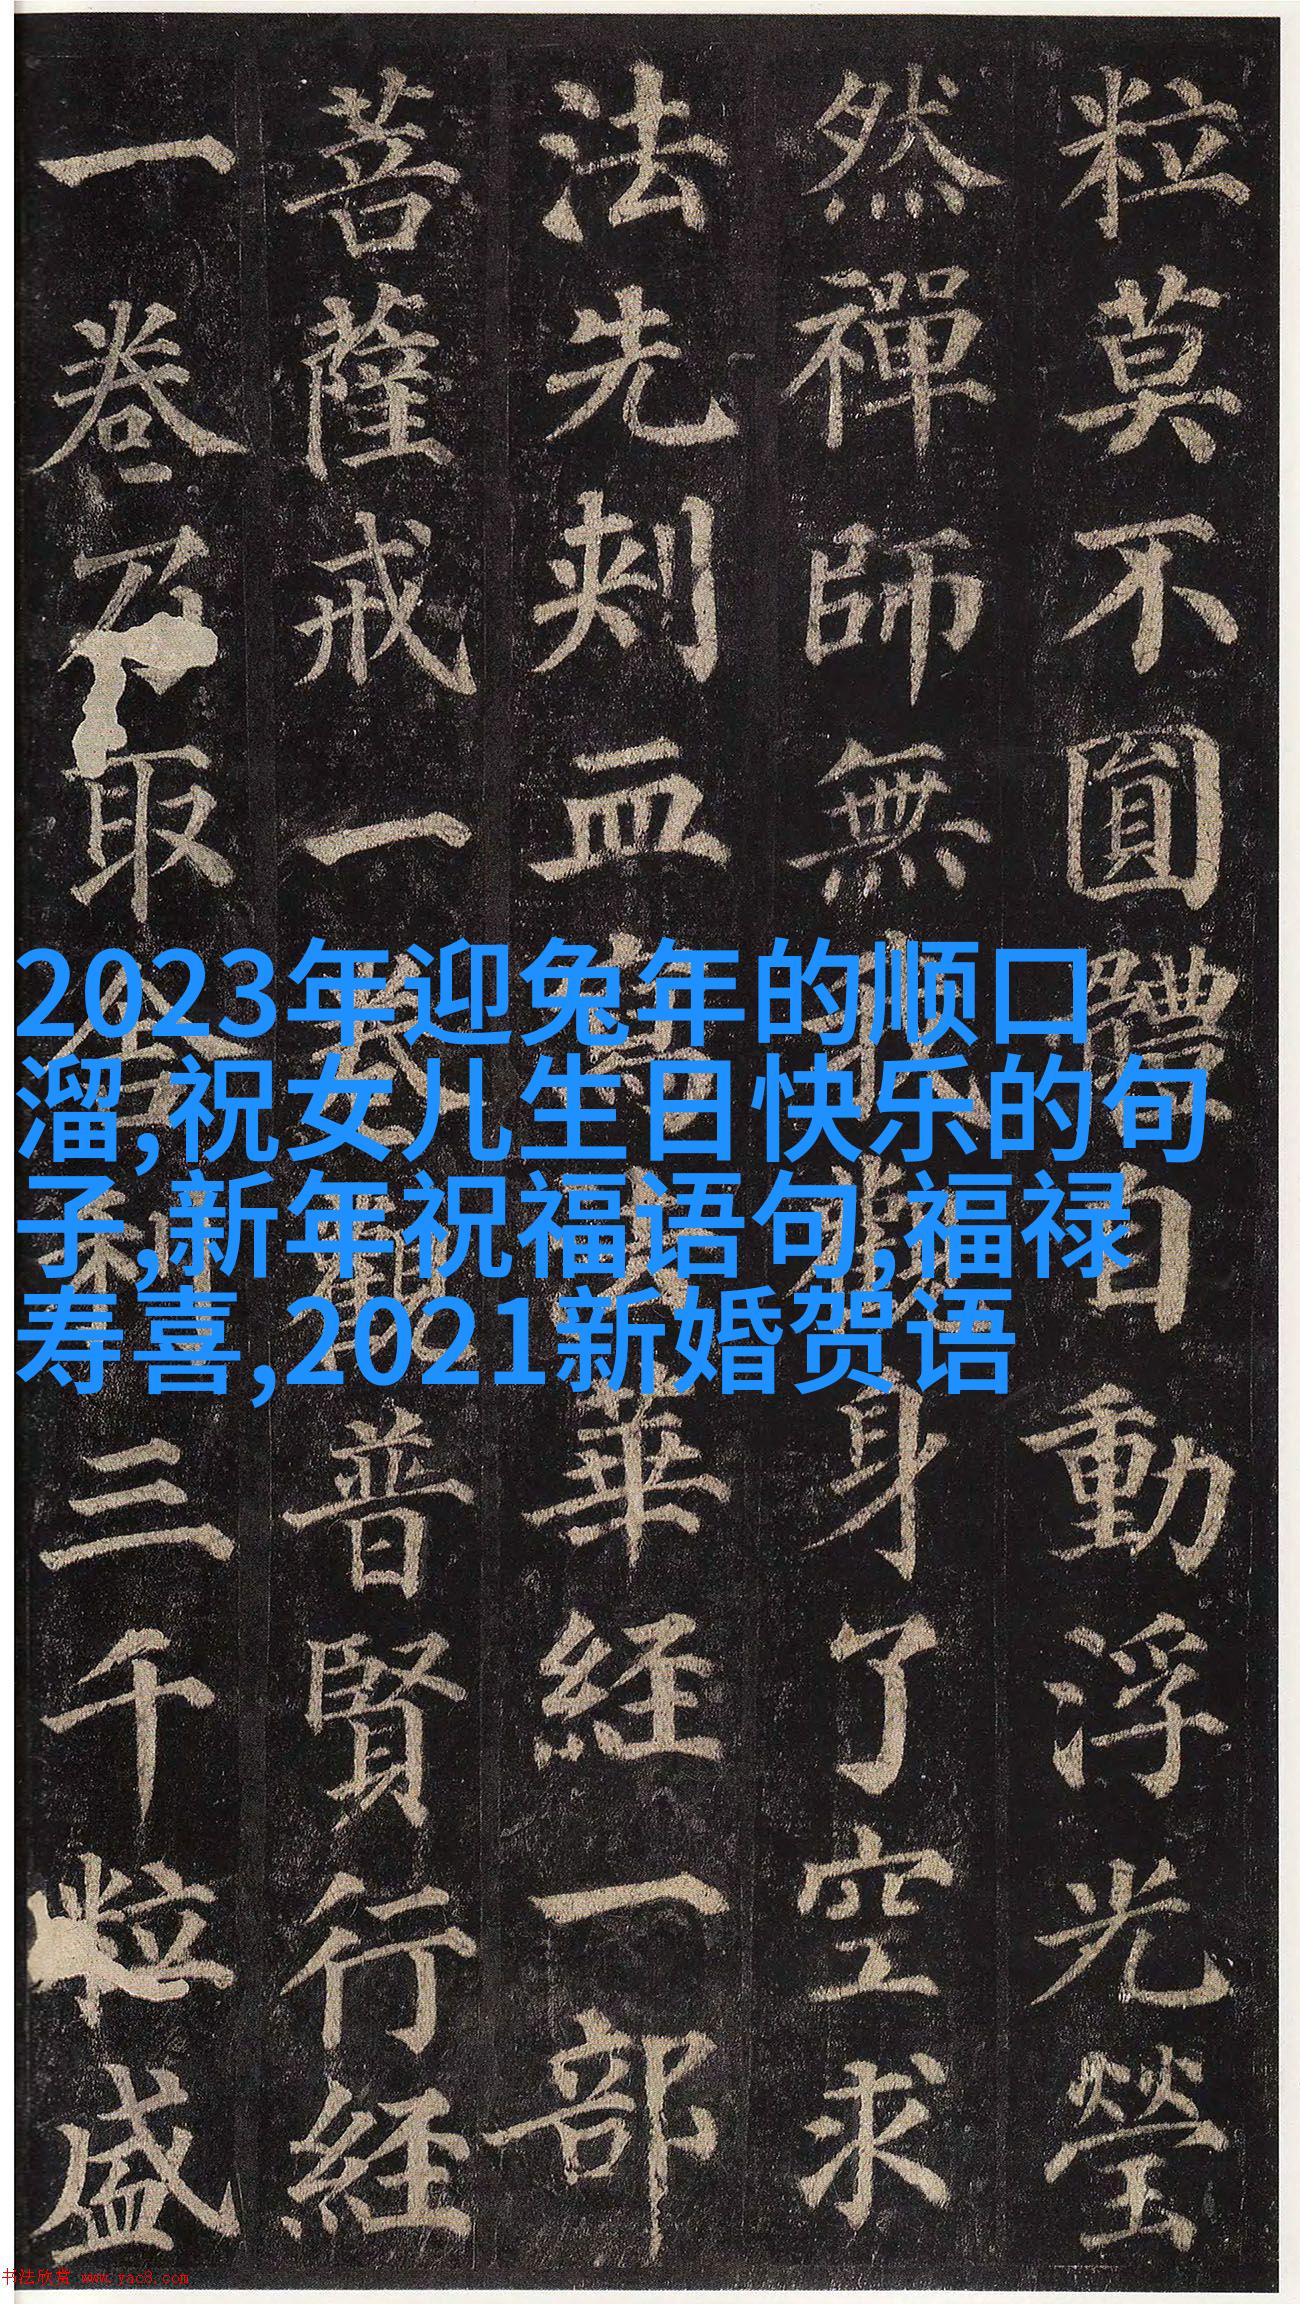 粒莫不圓體自動浮光瑩
然禪師無我觀身了空求
法先刾血寫法華経一部
菩薩戒一卷觀普賢行経
一卷乃取舍利三千粒盛
2023年迎兔年的顺口
溜,祝女儿生日快乐的句
子,新年祝福语句,福禄
寿喜,2021新婚贺语
书法欣赏 www.yac8.com